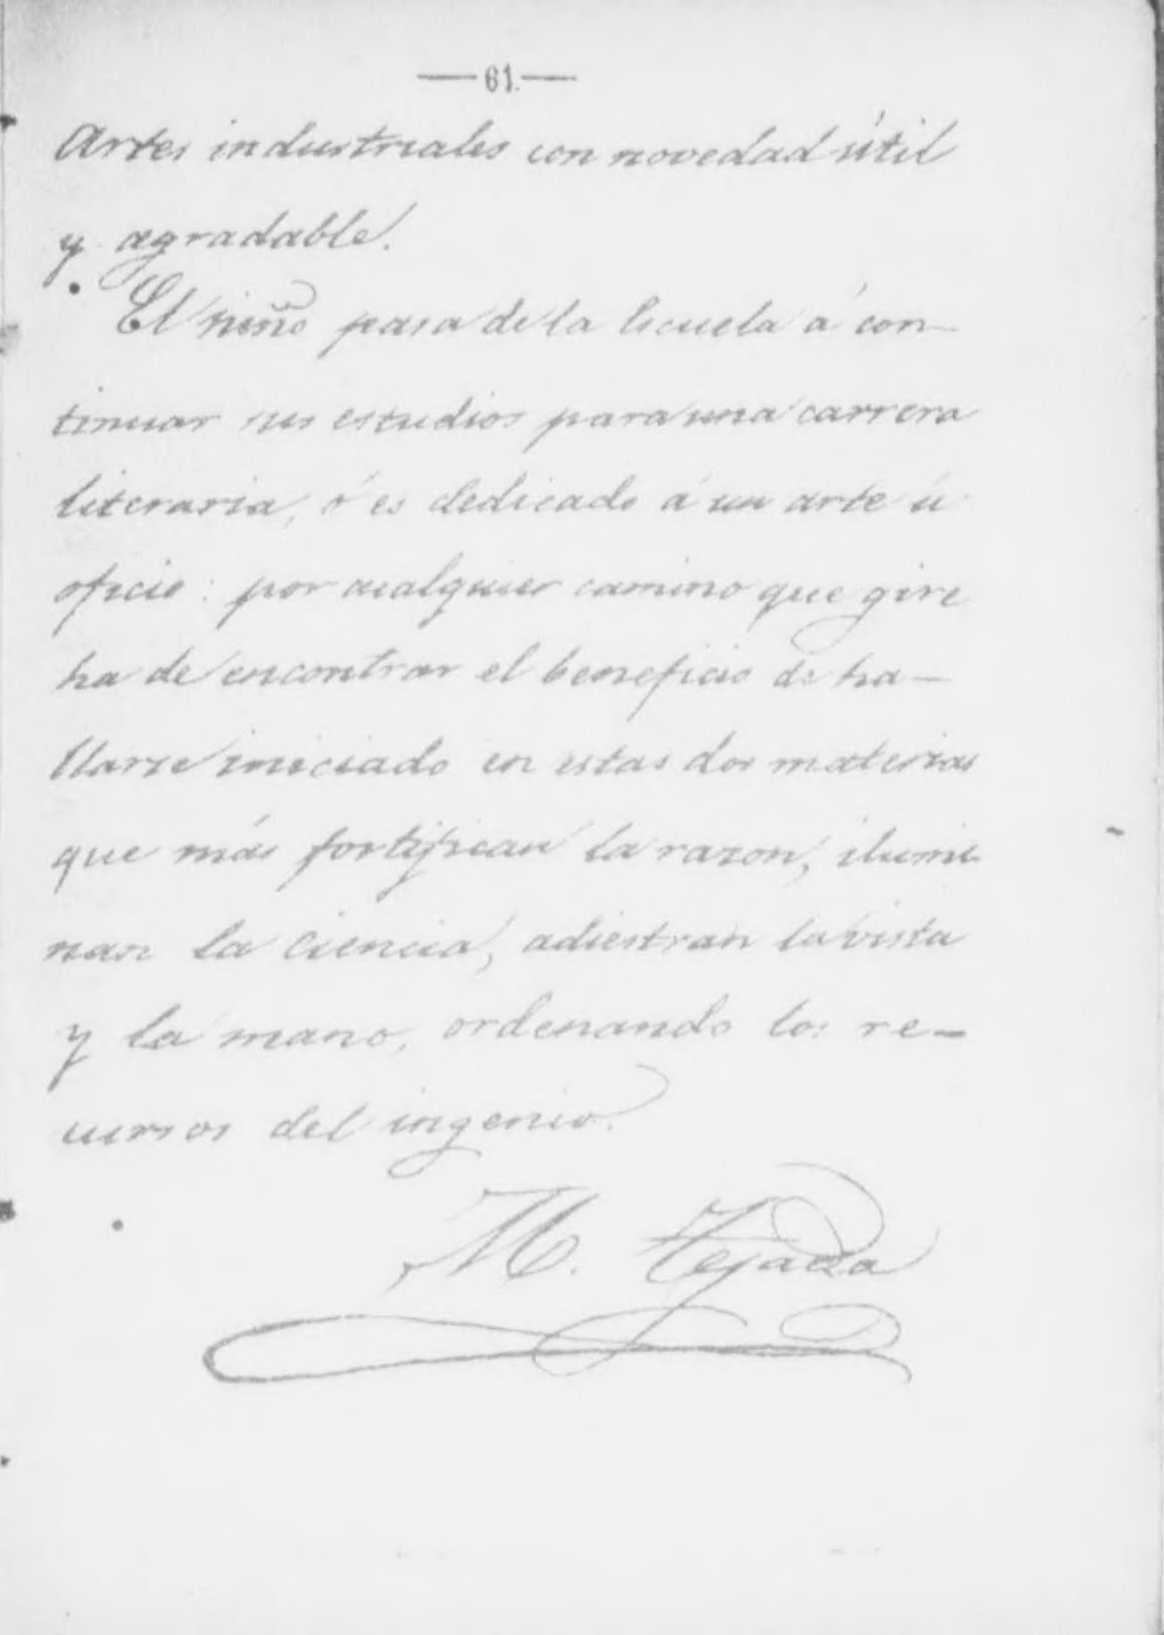 — 61. —
Artes industriales con novedad útil
y agradable.
El niño pasa de la Escuela á con-
tinuar sus estudios para una carrera
literaria, ó es dedicado á un arte ú
oficio: por cualquier camino que gire
ha de encontrar el beneficio de ha-
llarse iniciado en estas dos materias
que más fortifican la razon, ilumi-
nan la ciencia, adiestran la vista
y la mano, ordenando los re-
cursos del ingenio.
M. Tejada